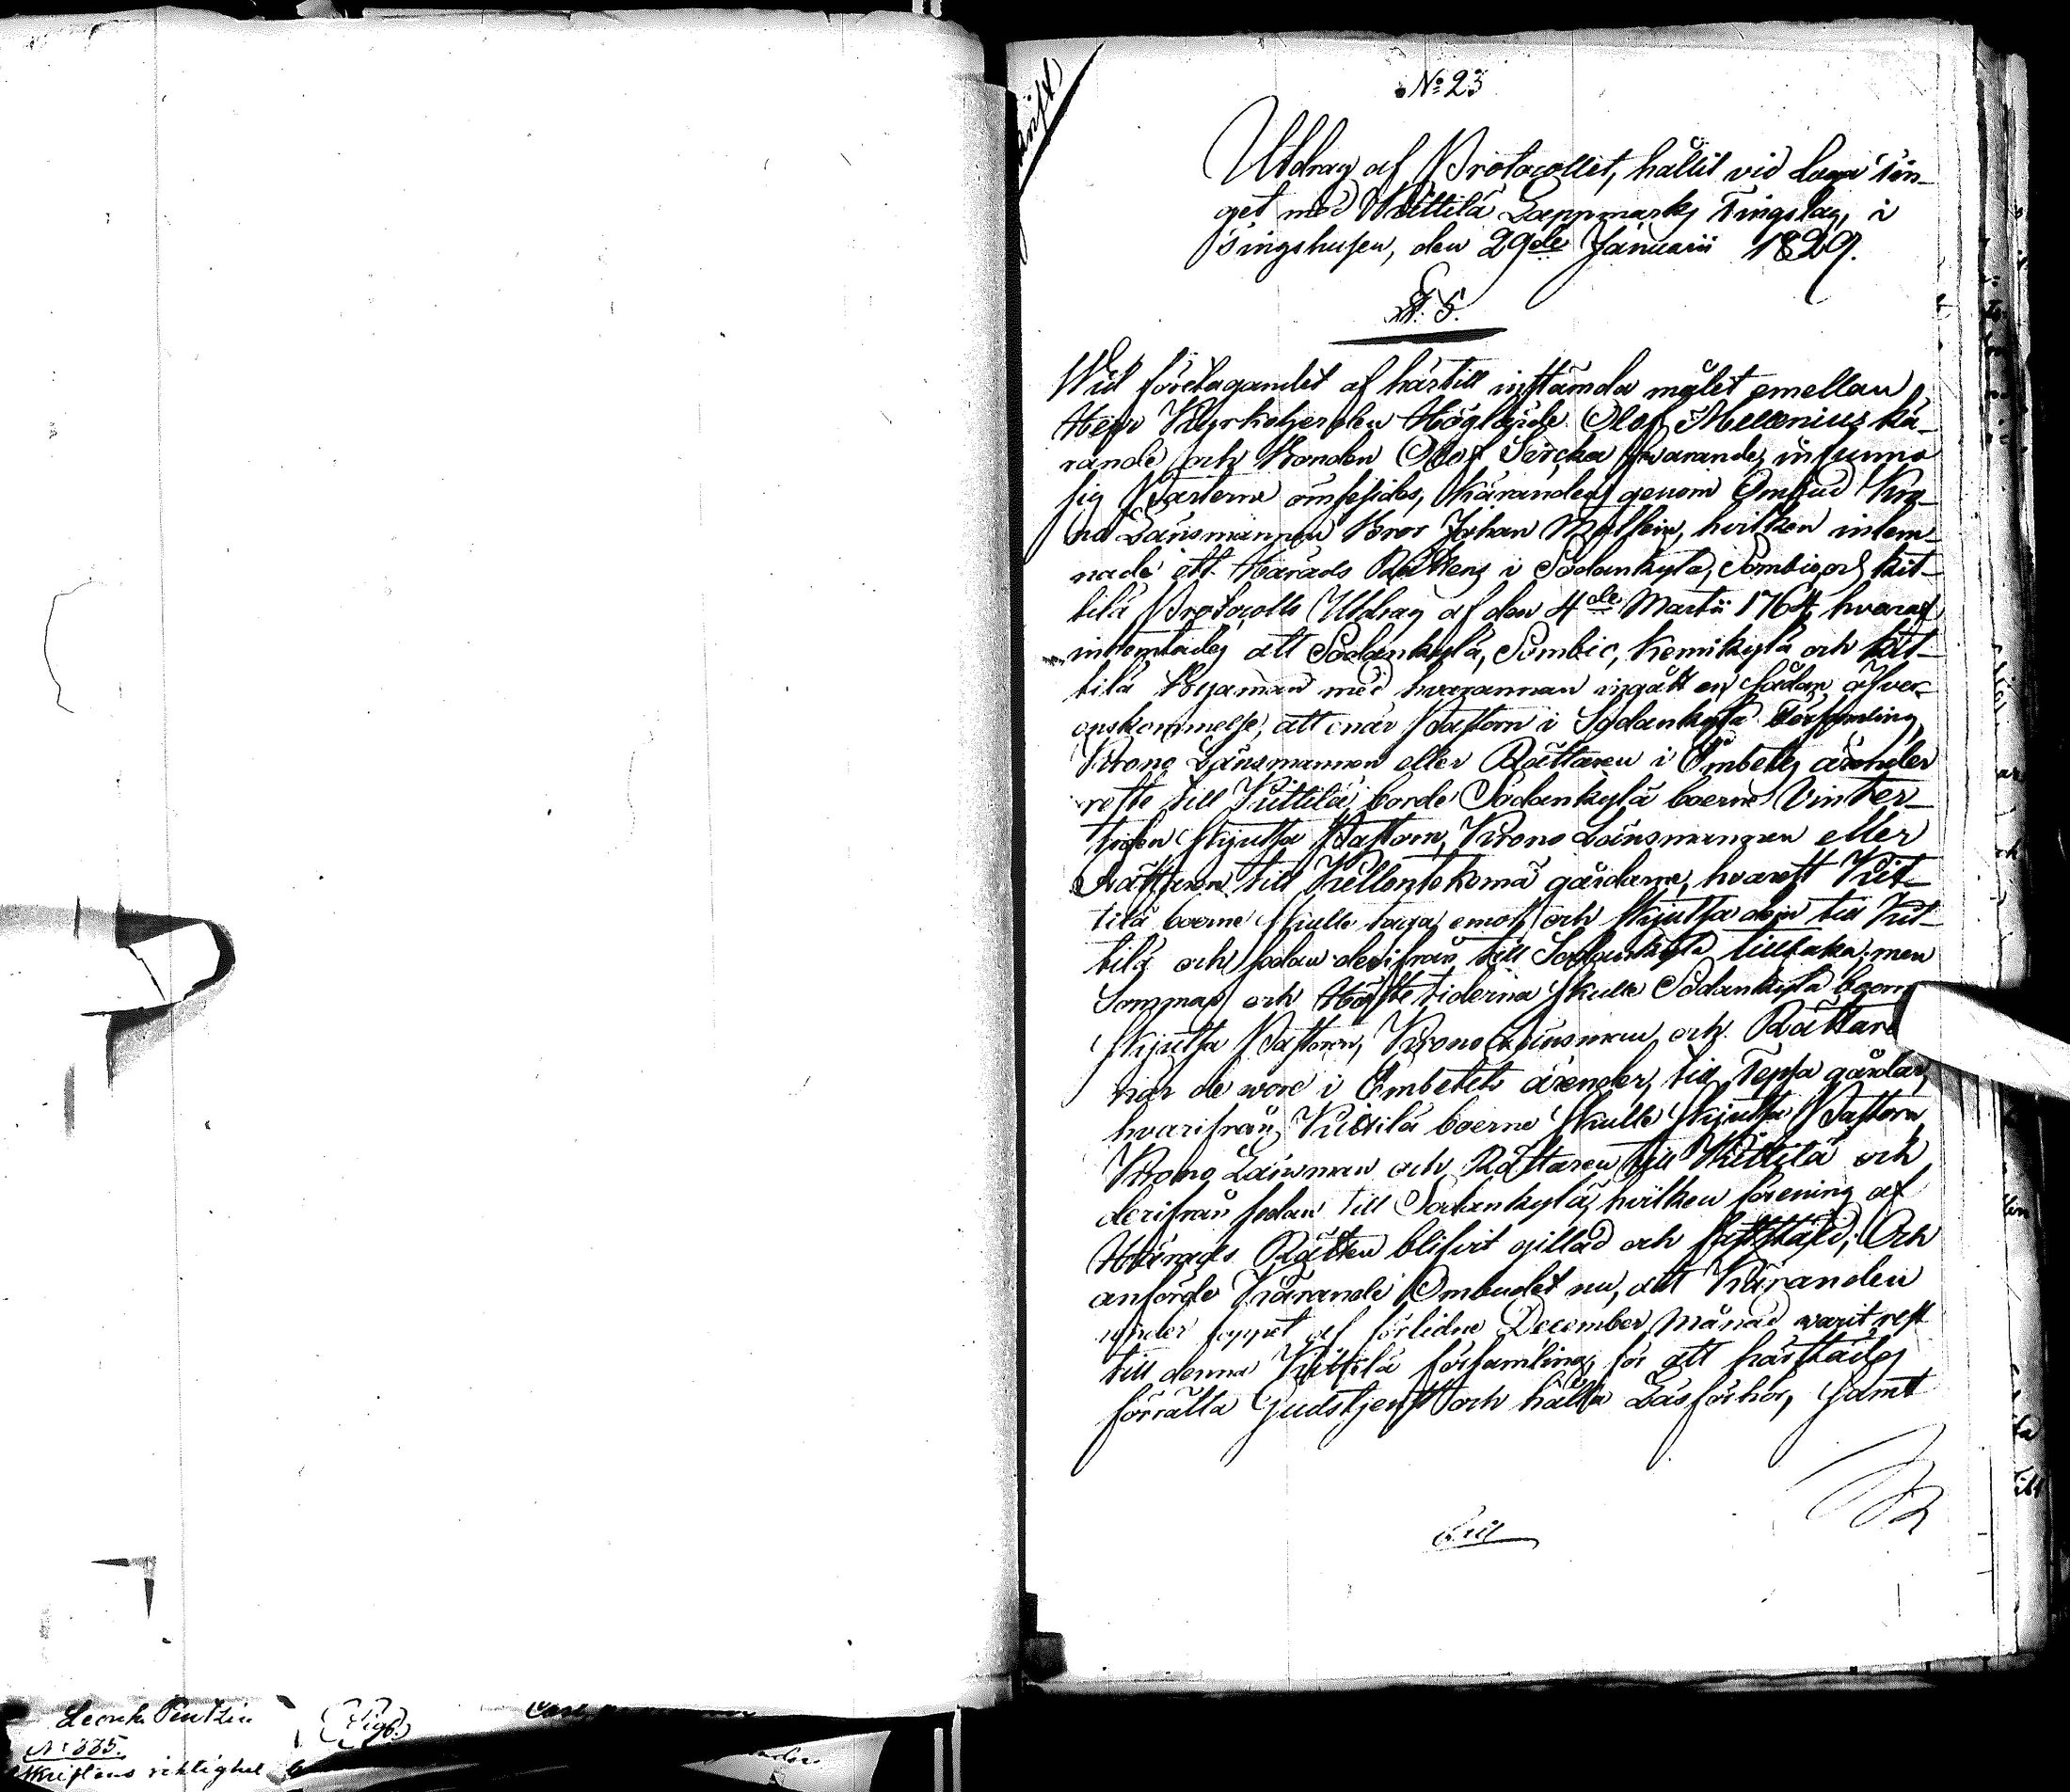 № 23
Utdrag af Protocollet, hållit vid Laga tin-
get med Kittilä Lappmarks Tingslag, i
Tingshusen, den 29de Januarii 1829.
§. 5.
Wid företagandet af härtill instämda målet emellan
Herr Kyrkoherden Höglärde Olof Mellenius kä-
rande och Bonden Olof Sircka svarande, infunno
sig Parterne ömsesides, Käranden genom Ombud Kro-
no Länsmannen Bror Johan Molhein, hvilken inlem-
nade ett Härads Rättens i Sodankylä, Sombio och Kit-
tilä Protocolls Utdrag af den 4de Martii 1764, hvaraf
inhemtades att Sodankylä, Sombio, Kemikylä och Kit-
tilä Byamän med hvarannan ingått en sådan öfver-
enskommelse, att enär Pastorn i Sodankylä Församling,
Krono Länsmannen eller Rättaren i Embets ärender
reste till Kittilä, borde Sodankylä boerne Vinter-
tiden skjutsa Pastorn, Krono Länsmannen eller
Rättaren till Kellontekemä gårdarne, hvarest Kit-
tilä boerne skulle taga emot och skjutsa dem till Kit-
tilä och sedan derifrån till Sodankylä tillbaka; men
Sommar och Höste tiderna skulle Sodankylä boerne
skjutsa Pastorn, Krono Länsman och Rättare
när de wore i Embetets ärender, till Tepsa gårdar,
hvarifrån Kittilä boerne skulle skjutsa Pastorn
Krono Länsman och Rättaren till Kittilä och
derifrån sedan till Sodankylä, hvilken förening af
Härads Rätten blifvit gillad och fastställd; Och
anförde Kärande Ombudet nu, att Käranden
under loppet af förlidne December Månad warit rest
till denna Kittilä församling, för att härstädes
förrätta Gudstjenst och hålla Läsförhör, samt
Leonh. Pentzin
N: 885.
skriftens riktighet